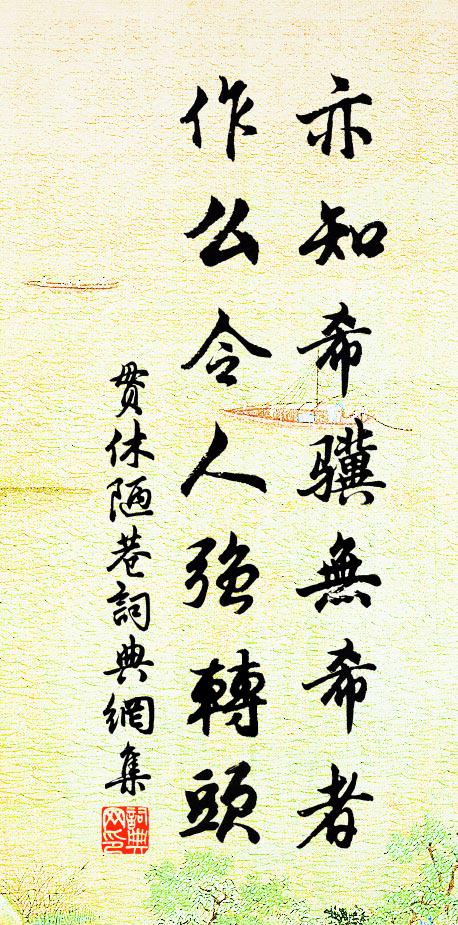 亦知希驥無希者
作么令人強轉頭
貫休陋巷詞典網集
詞典网印